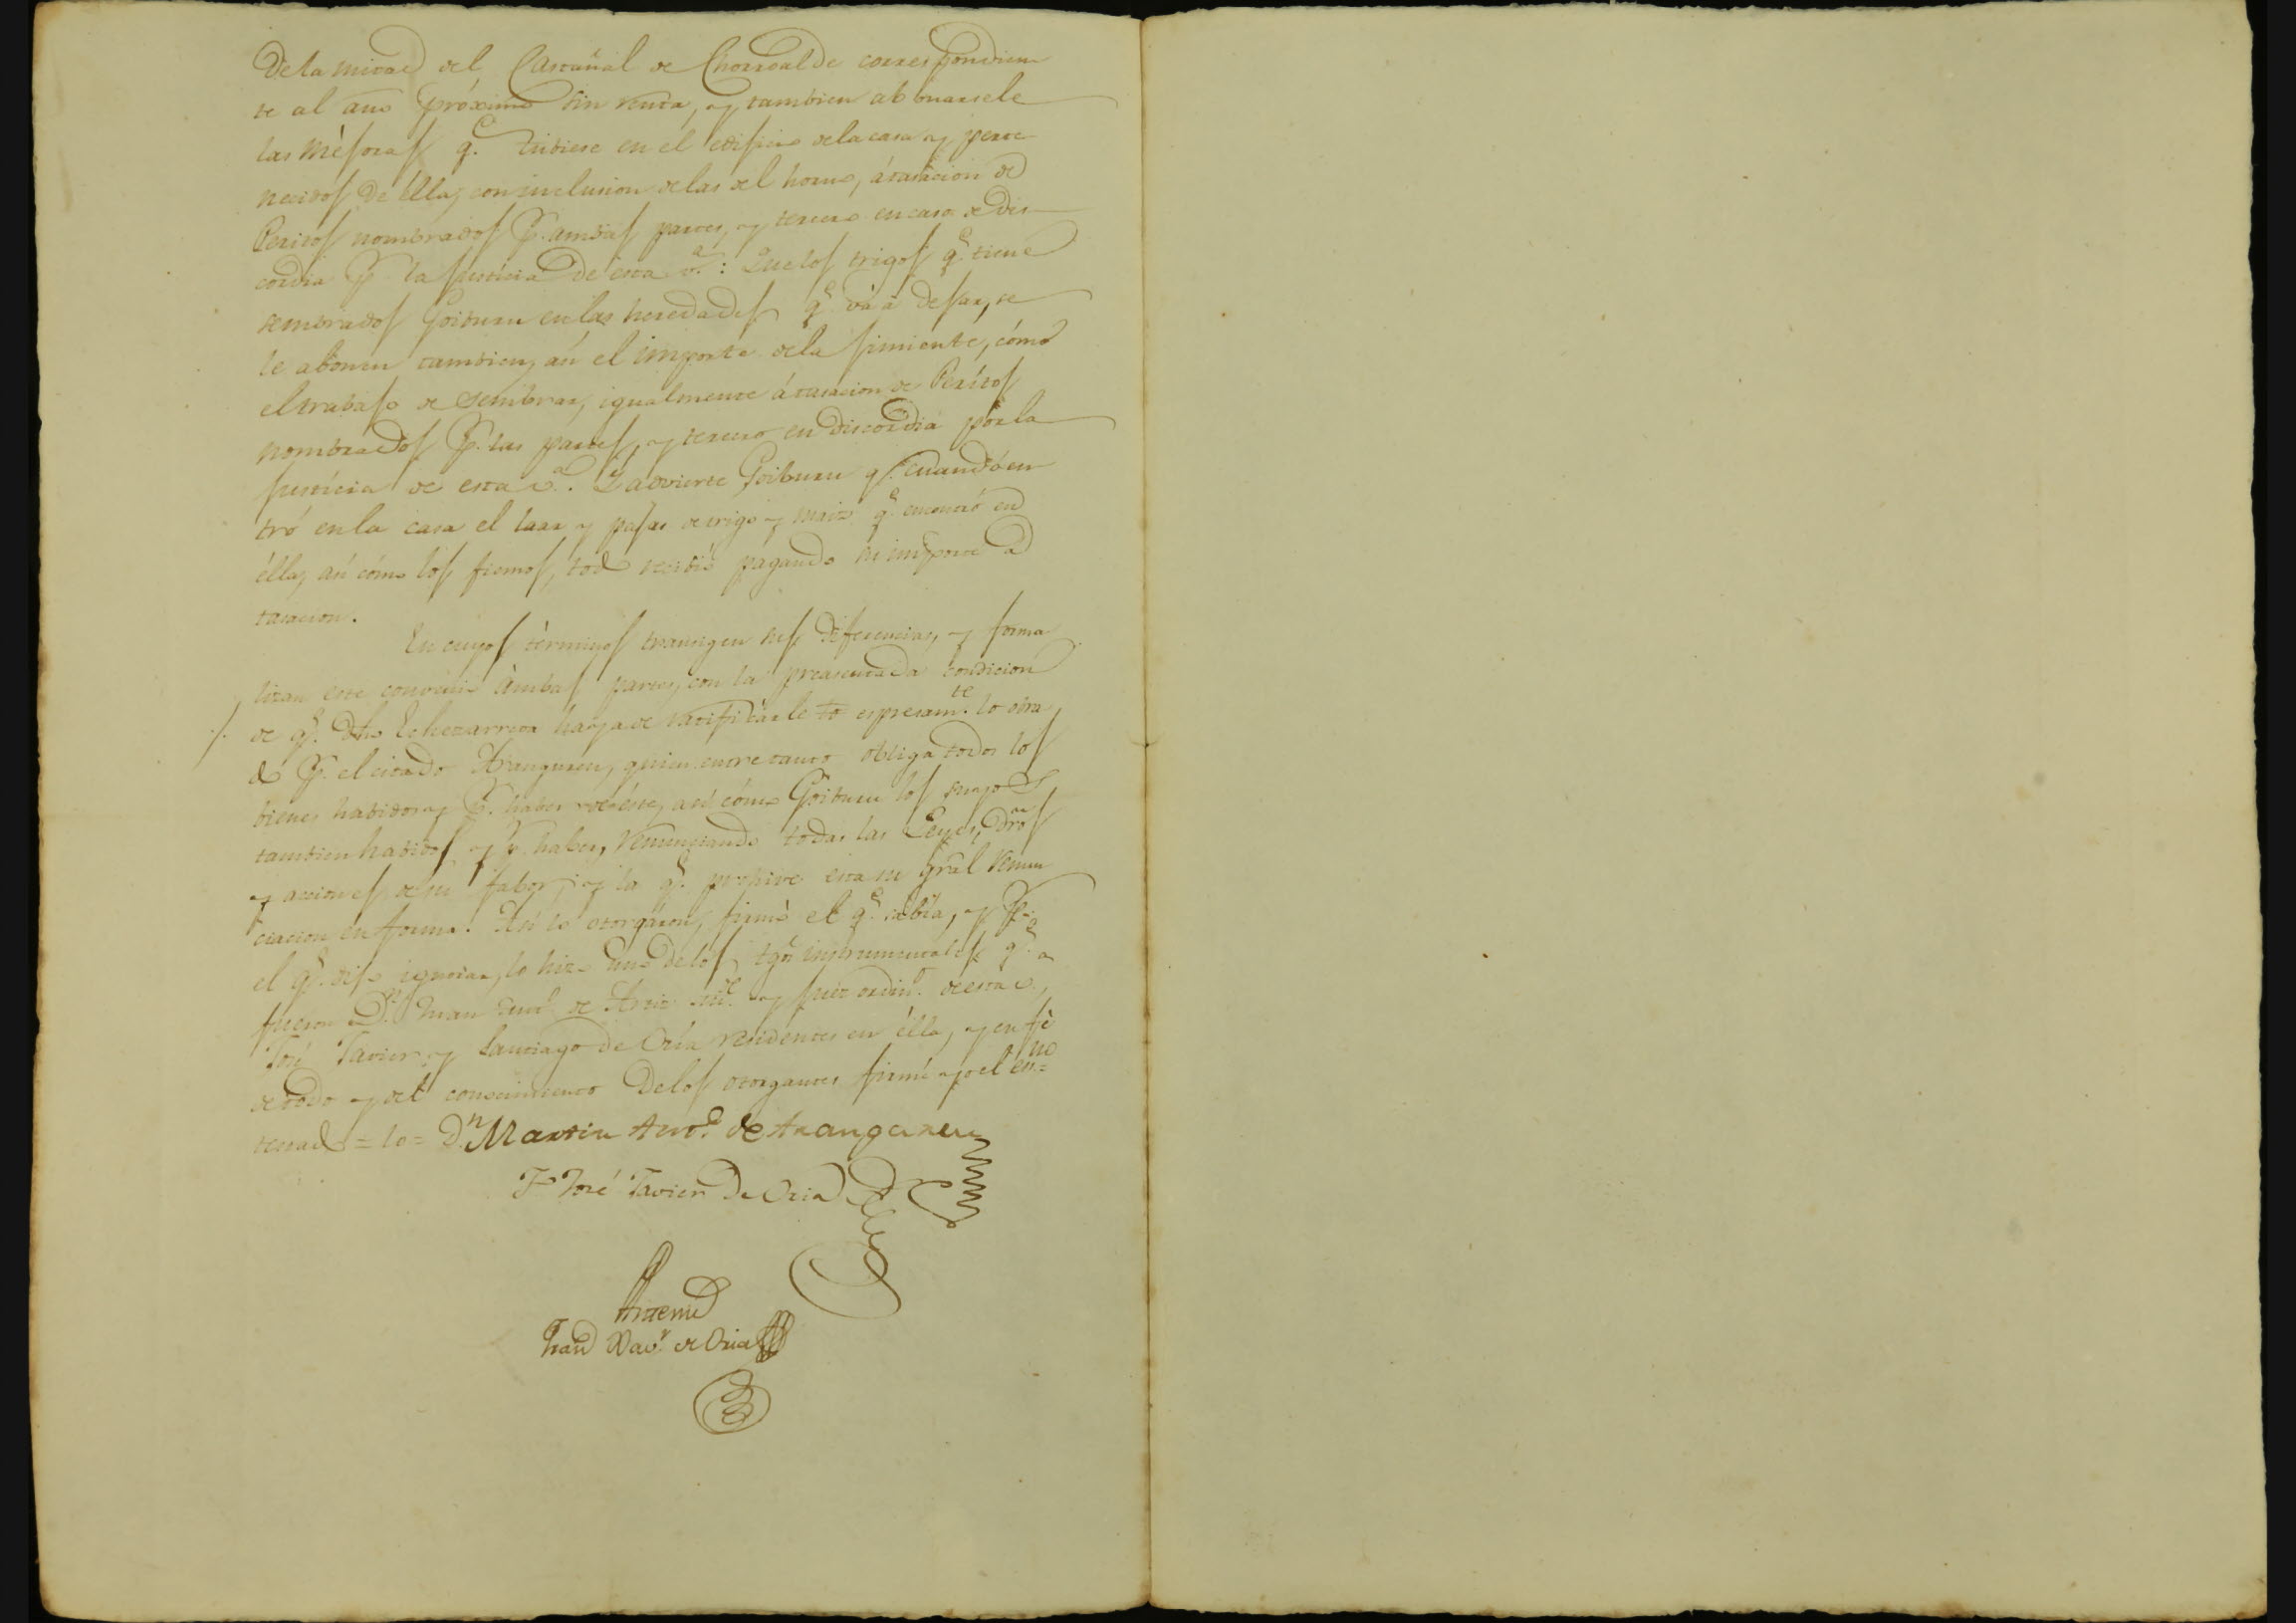 de la mitad del Castañal de Chorroalde correspondien
te al año próximo sin renta, y tambien abonarsele
las mèjoras q.e tubiese en el edificio de la casa y perte
necidos de élla, con inclusion de las del horno, á tasacion de
Peritos nombrados p.r ambas partes, y tercero en caso de dis
cordia p.r la Justicia de esta v.a: Que los trigos q.e tiene
sembrados Goiburu en las heredades q.e vá á dejar, se
le abonen tambien, así el importe de la simiente, cómo
el trabajo de sembrar, igualmente á tasacion de Peritos
nombrados p.r las partes, y tercero en discordia por la
Justicia de esta v.a. Y advierte Goiburu q.e cuando en
tró en la casa el laar y pajas de trigo y maiz q.e encontró en
élla, así cómo los fiemos, todo recibió pagando su importe á
tasacion.
En cuyos tèrminos transigen sus diferencias, y forma
lizan este convenio àmbas partes, con la preasentada condicion
./. de q.e dho Echezarreta haya de ratificarle to expresam.te lo obra
do p.r el citado Aranguren, quien entre tanto obliga todos los
bienes habidos y p.r haber de éste, así cómo Goiburu los suyos,
tambien habidos y p.r haber, renunciando todas las Leyes, dros
y acciones de su fabor, y la q.e prohive esta su gràl renun
ciacion en forma. Así lo otorgáron, firmó el q.e sabía, y p.r
el q.e dijo ignorar, lo hizo uno de los tgos instrumentales q.e
fueron D.n Juan de Alc.de y Juez ordin.o de esta v.a,
José Javier y Santiago de Oria residentes en élla, y en fè
de todo y del conocimiento de los otorgantes firmé yo el es.no=
testado = lo = D.n Martin Ant.o de Aranguren
T.o José Javier de Oria
Antemi
Juan Xav.r de Oria